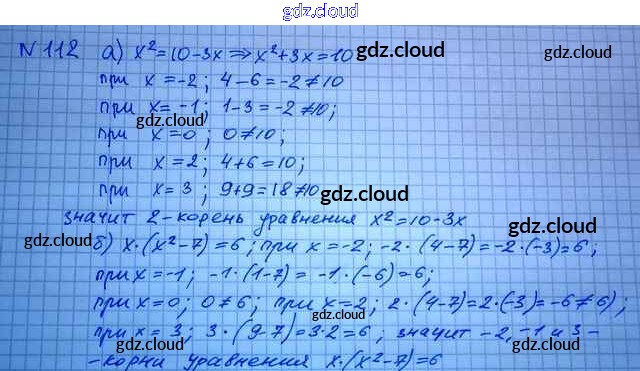 gdz.cloud
N 112 а) x²=10-3x⇒x²+3x=10
gdz.cloud
при x=-2; 4-6=-2≠10
при x=-1; 1-3=-2≠10;
gdz.cloud
при x=0; 0≠10;
при x=2; 4+6=10;
при x=3; 9+9=18≠10
gdz.cloud
значит 2-корень уравнения x²=10-3x
gdz.cloud
gdz.cloud
б) x·(x²-7)=6; при x=-2; -2·(4-7)=-2·(-3)=6;
при x=-1; -1·(1-7)= -1·(-6)=6;
при x=0; 0≠6; при x=2; 2·(4-7)=2·(-3)=-6≠6;
gdz.cloud
при x=3; 3·(9-7)=3·2=6; значит -2,-1 и 3-
gdz.cloud
-корни уравнения x·(x²-7)=6